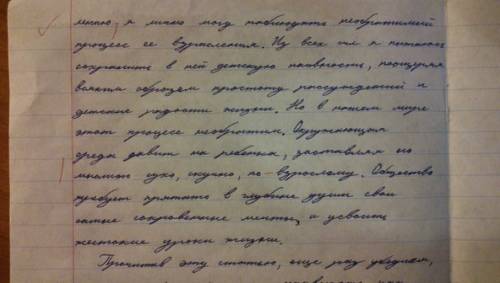 лению, я лично могу наблюдать необратимый
процесс ее взросления. Из всех сил я пытаюсь
сохранить в ней детскую наивность, поощряя
всяким образом простоту рассуждений и
детские радости жизни. Но в нашем мире
этот процесс необратим. Окружающая
среда давит на ребенка, заставляя его
мыслить сухо, скучно, по-взрослому. Общество
требует прятать в глубине души свои
самые сокровенные мечты, и усвоить
жестокие уроки жизни.
Прочитав эту статью, еще раз убедилась,
наивность